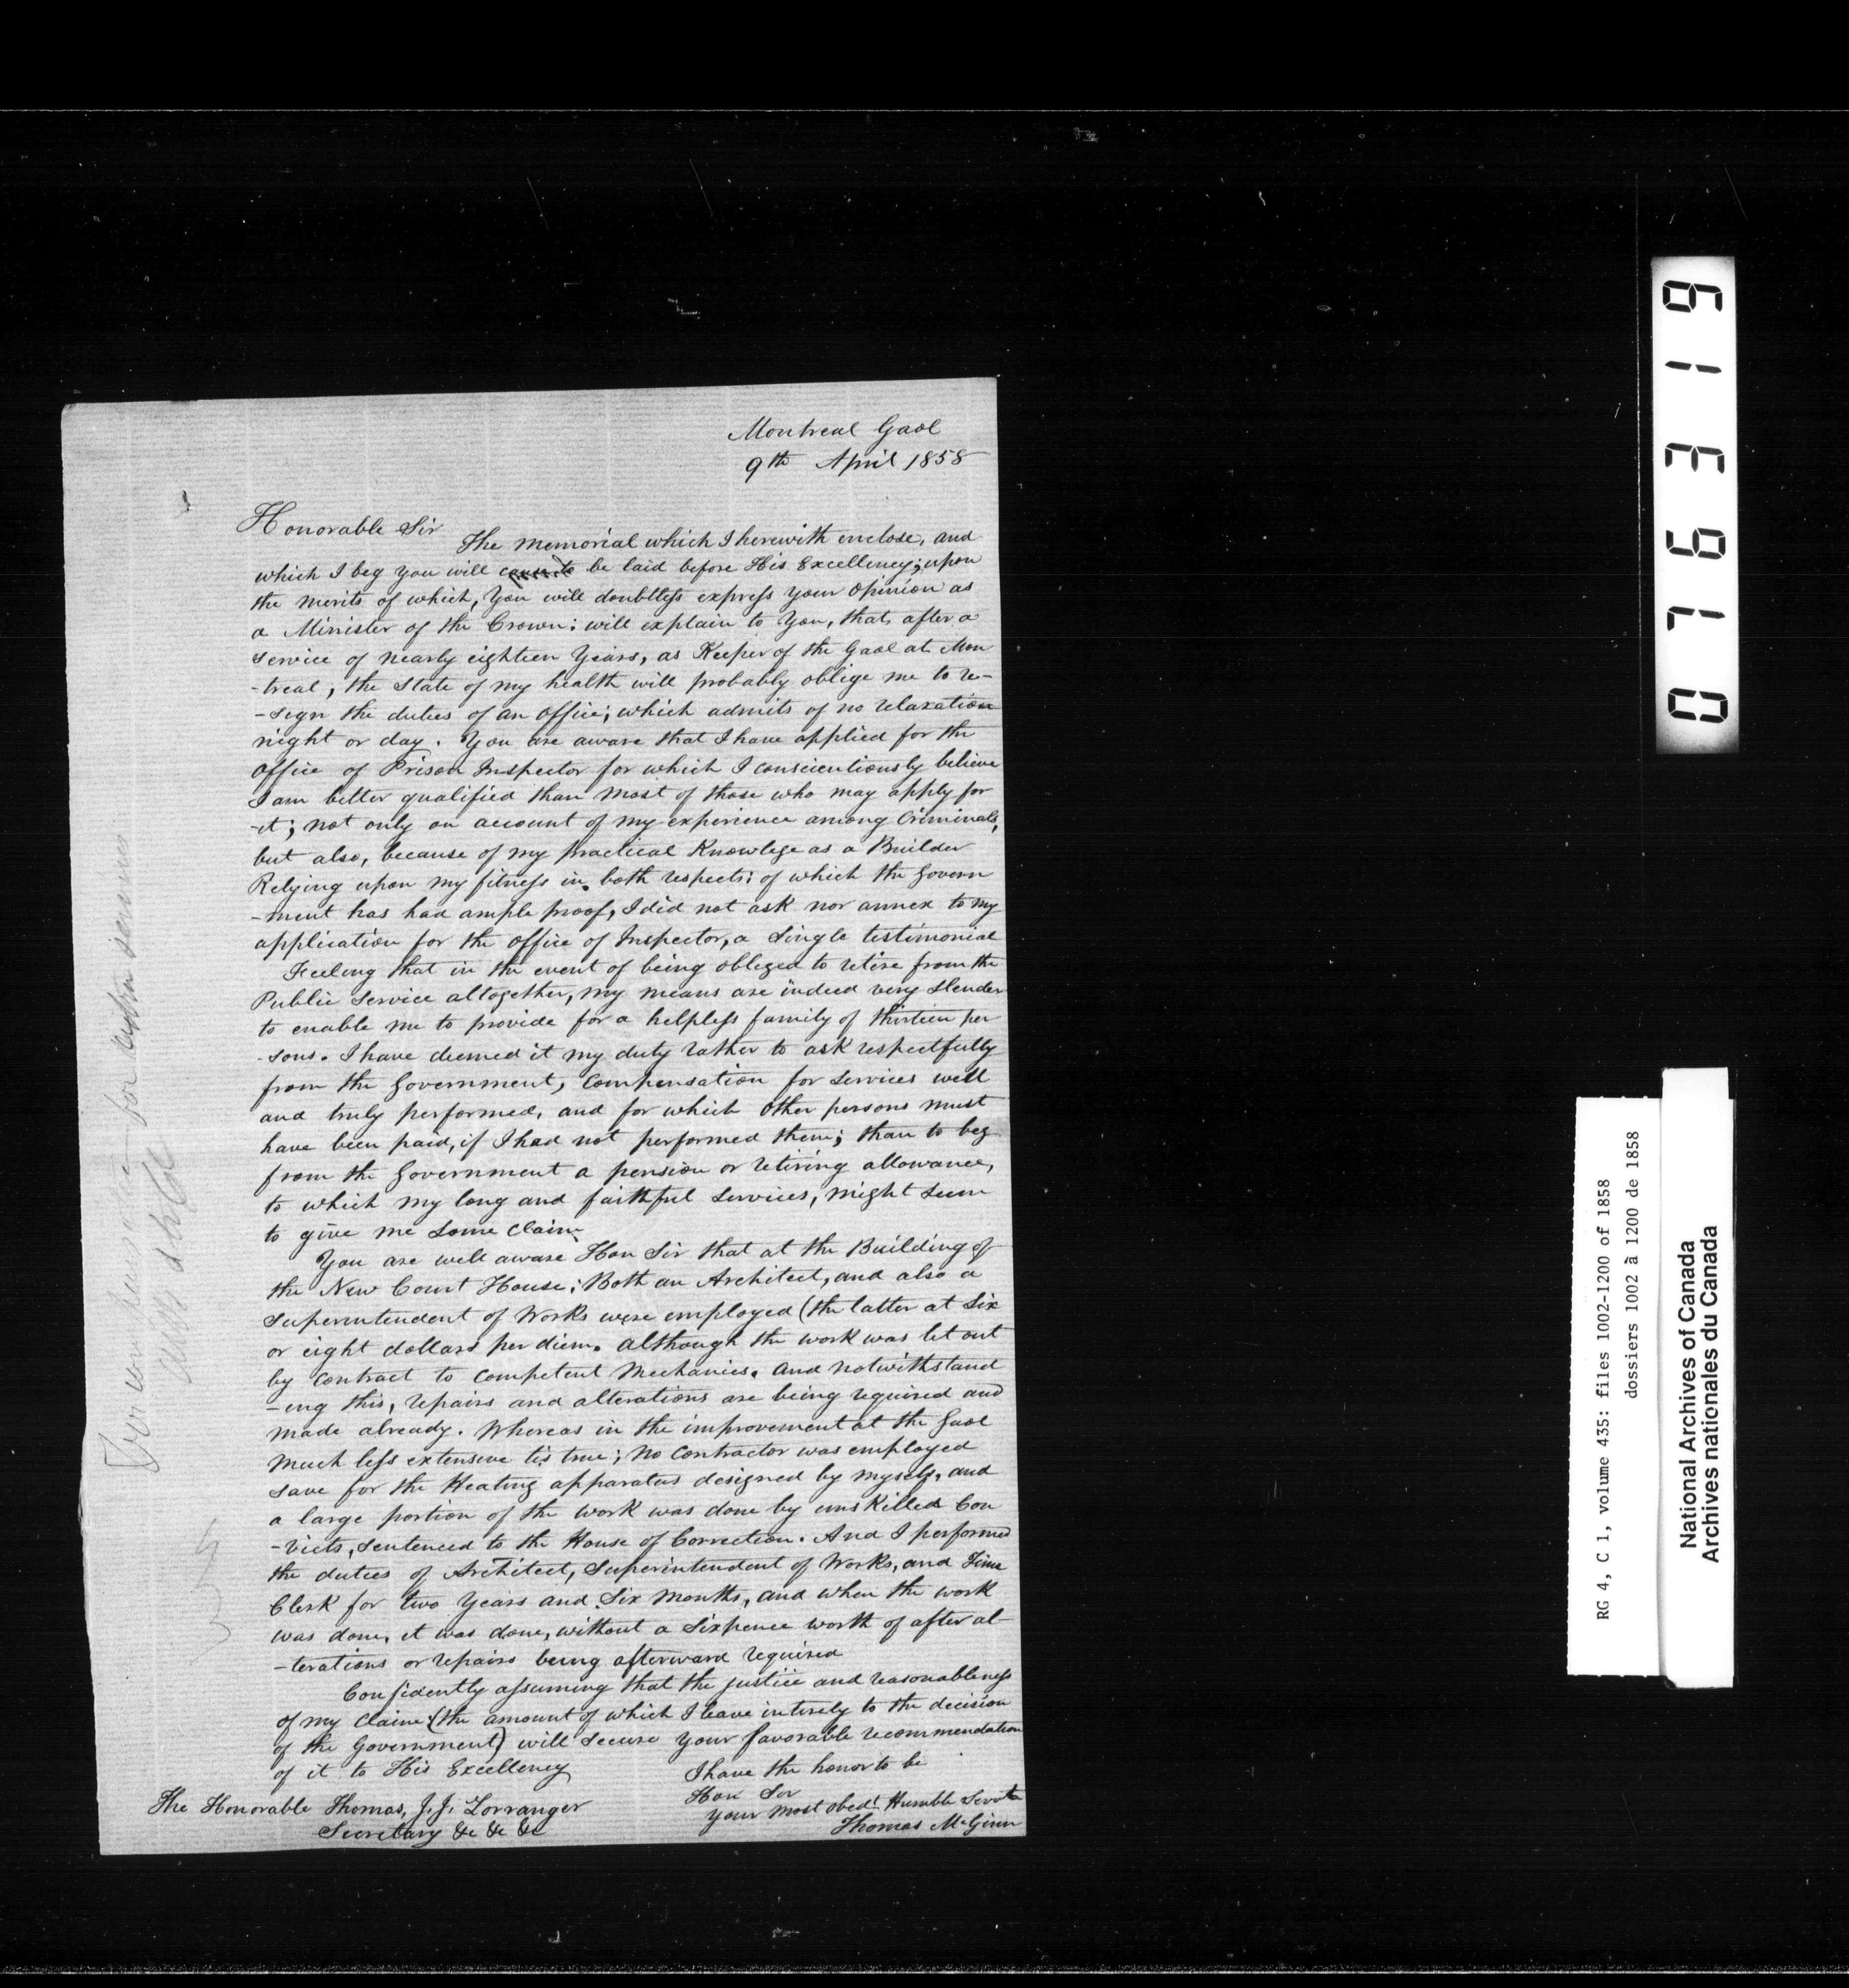 Montreal Gaol
9th April 1858
Honorable Sir
The memorial which I herewith enclose, and
which I beg you will cause to be laid before His Excellency; upon
the merits of which, You will doubtless express your opinion as
a Minister of the Crown: will explain to You, that after a
service of nearly eighteen Years, as Keeper of the Gaol at Mon
-treal, the state of my health will probably oblige me to re-
-sign the duties of an office; which admits of no relaxation
night or day. You are aware that I have applied for the
office of Prison Inspector for which I conscientiously believe
I am better qualified than most of those who may apply for
-it; not only on account of my experience among Criminals,
but also, because of my practical Knowlege as a Builder
Relying upon my fitness in both respects: of which the Govern
-ment has had ample proof, I did not ask nor annex to my
application for the office of Inspector, a single testimonial
Feeling that in the event of being obliged to retire from the
Public Service altogether, my means are indeed very slender
to enable me to provide for a helpless family of thirteen per
-sons. I have deemed it my duty rather to ask respectfully
from the Government, Compensation for services well
and truly performed, and for which other persons must
have been paid, if I had not performed them; than to beg
from the Government a pension or retiring allowance,
to which my long and faithful services, might seem
to give me some claim
You are well aware Hon Sir that at the Building of
the New Court House; Both an Architect, and also a
Superintendent of Works were employed (the latter at six
or eight dollars per diem. although the work was let out
by Contract to Competent Mechanics. And notwithstand
-ing this, repairs and alterations are being required and
made already. Whereas in the improvement at the Gaol
much less extensive tis true; No Contractor was employed
save for the Heating apparatus designed by myself, and
a large portion of the work was done by unskilled Con
-victs, sentenced to the House of Correction. And I performed
the duties of Architect, Superintendent of Works, and Time
Clerk for two Years and Six Months, and when the work
was done, it was done, without a Sixpence worth of after al-
-terations or repairs being afterward required
Confidently assuming that the justice and reasonableness
of my claim (the amount of which I leave intirely to the decision
of the Government) will secure your favorable recommendation
of it to His Excellency
I have the honor to be
Hon Sir
Your most obedt Humble Servt
Thomas McGinn
The Honorable Thomas, J. J. Lorranger
Secretary &c &c &c
for extra services
076319
RG 4, C 1, volume 435: files 1002-1200 of 1858
dossiers 1002 à 1200 de 1858
National Archives of Canada
Archives nationales du Canada